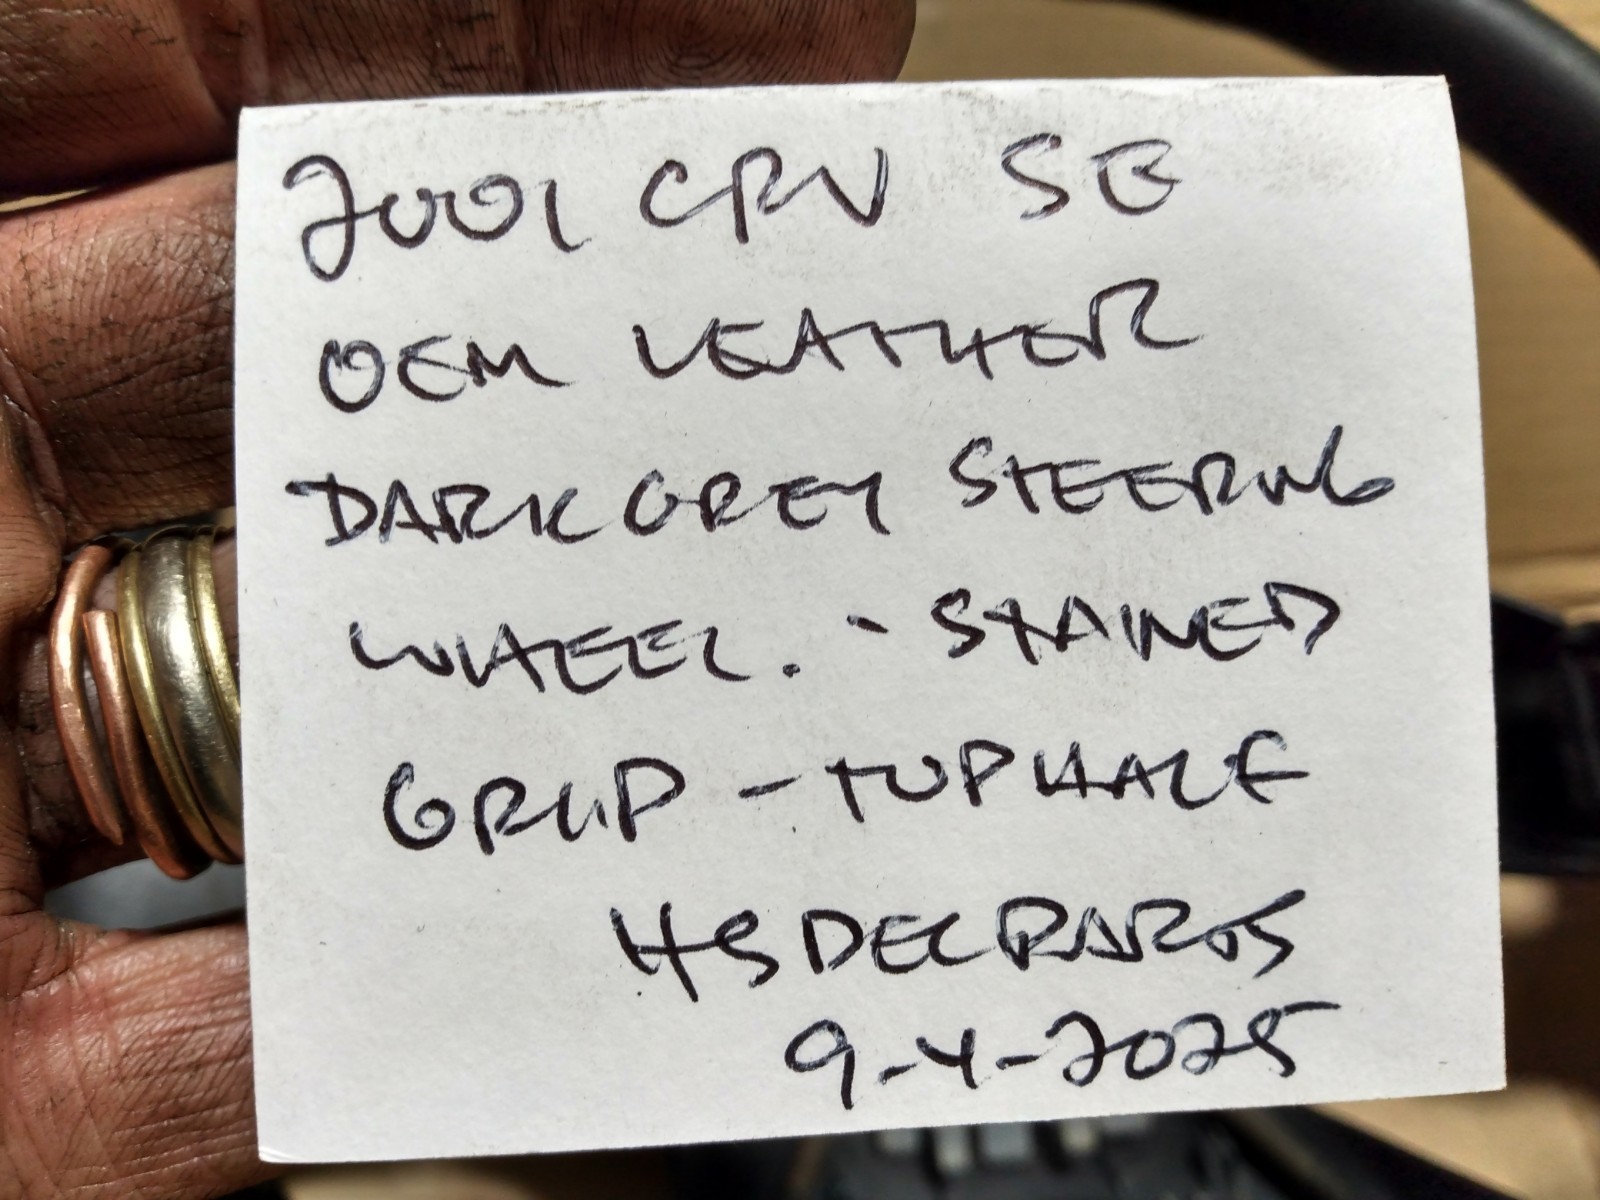 2001 CRV SE
OEM LEATHER
DARK GREY STEERING
WHEEL. - STAINED
GRIP - TOP HALF
HSDELRARTS
9-4-2025